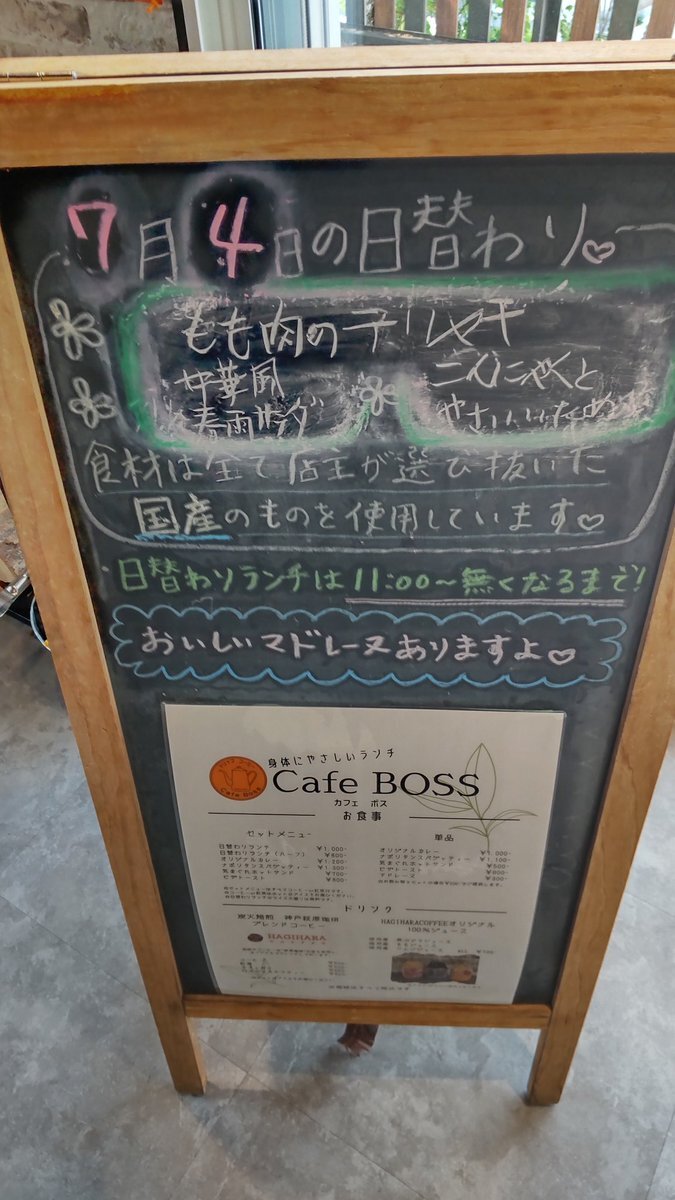 7月4日の日替わり♡
もも肉のテリヤキ
中華風
春雨サラダ
こんにゃくと
やさいいため
食材は全て店主が選び抜いた
国産のものを使用しています♡
・日替わりランチは11:00〜無くなるまで!
おいしいマドレーヌありますよ♡
身体にやさしいランチ
Cafe BOSS
カフェ ボス
お食事
セットメニュー
日替わりランチ ¥1,000-
日替わりランチ(ハーフ) ¥800-
オリジナルカレー ¥1,200-
ナポリタンスパゲッティー ¥1,300-
気まぐれホットサンド ¥700-
ピザトースト ¥800-
単品
オリジナルカレー ¥1,000-
ナポリタンスパゲッティー ¥1,100-
気まぐれホットサンド ¥500-
ピザトースト ¥600-
マドレーヌ
ドリンク
炭火焙煎 神戸萩原珈琲
ブレンドコーヒー
HAGIHARA
HAGIHARACOFFEEオリジナル
100%ジュース